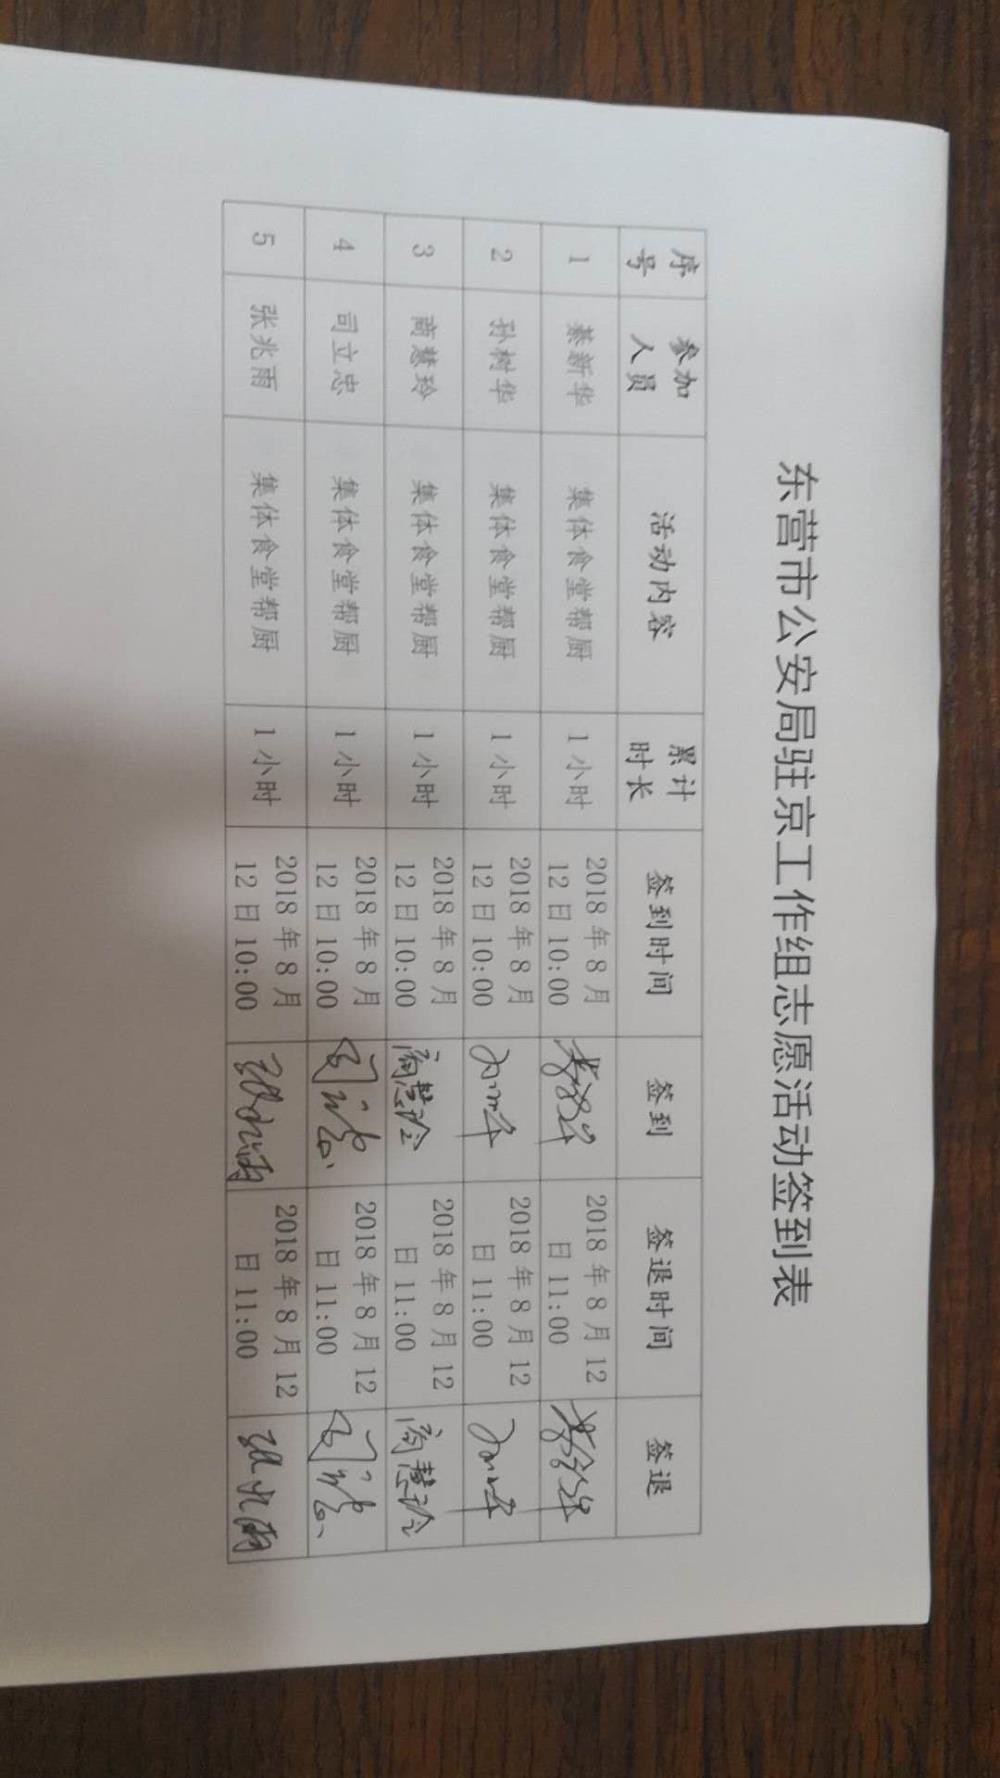 东营市公安局驻京工作组志愿活动签到表
序号 参加人员 活动内容 累计时长 签到时间 签到 签退时间 签退
1 綦新华 集体食堂帮厨 1 小时 2018 年 8 月 12 日 10:00 2018 年 8 月 12 日 11:00
2 孙树华 集体食堂帮厨 1 小时 2018 年 8 月 12 日 10:00 2018 年 8 月 12 日 11:00
3 商慧玲 集体食堂帮厨 1 小时 2018 年 8 月 12 日 10:00 商慧玲 2018 年 8 月 12 日 11:00 商慧玲
4 司立忠 集体食堂帮厨 1 小时 2018 年 8 月 12 日 10:00 2018 年 8 月 12 日 11:00
5 张兆雨 集体食堂帮厨 1 小时 2018 年 8 月 12 日 10:00 张兆雨 2018 年 8 月 12 日 11:00 张兆雨